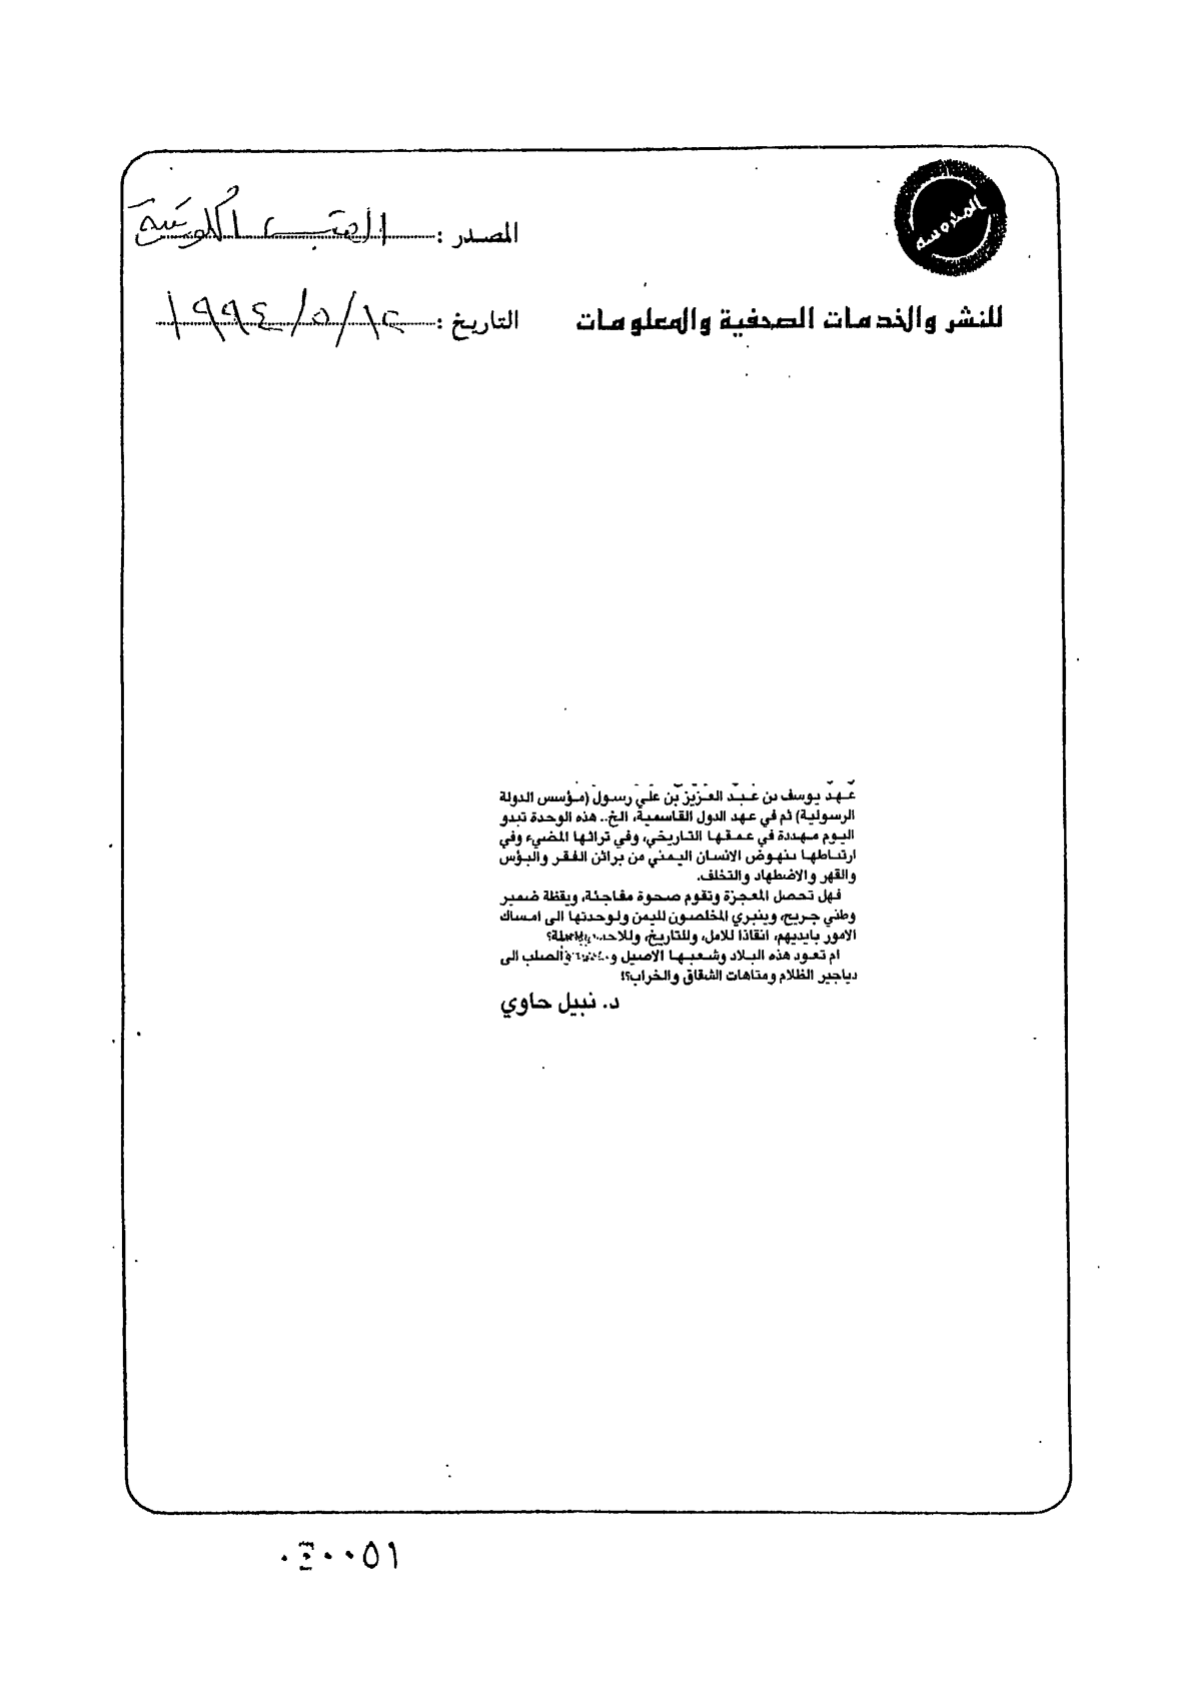 المصدر : القبس الكويتية
المدوسة
التاريخ : ١٩٩٤/٥/١٢
للنشر والخدمات الصحفية والمعلومات
عهد يوسف بن عبد العزيز بن علي رسول (مؤسس الدولة
الرسولية) ثم في عهد الدول القاسمية، الخ.. هذه الوحدة تبدو
اليوم مهددة في عمقها التاريخي، وفي تراثها المضيء وفي
ارتباطها بنهوض الانسان اليمني من براثن الفقر والبؤس
والقهر والاضطهاد والتخلف.
فهل تحصل المعجزة وتقوم صحوة مفاجئة، ويقظة ضمير
وطني جريح، وينبري المخلصون لليمن ولوحدتها الى امساك
الامور بايديهم، انقاذا للامل، وللتاريخ،
ام تعود هذه البلاد وشعبها الاصيل الصلب الى
دياجير الظلام ومتاهات الشقاق والخراب؟!
د. نبيل حاوي